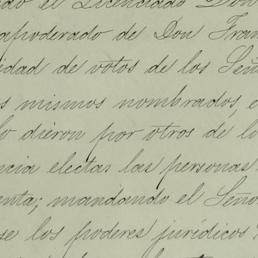 do el Licenciado Don
apoderado de Don Fran
idad de votos de los Señ
s mismos nombrados, e
lo dieron por otros de lo
ncia electas las personas
enta; mandando el Seño
se los poderes jurídicos